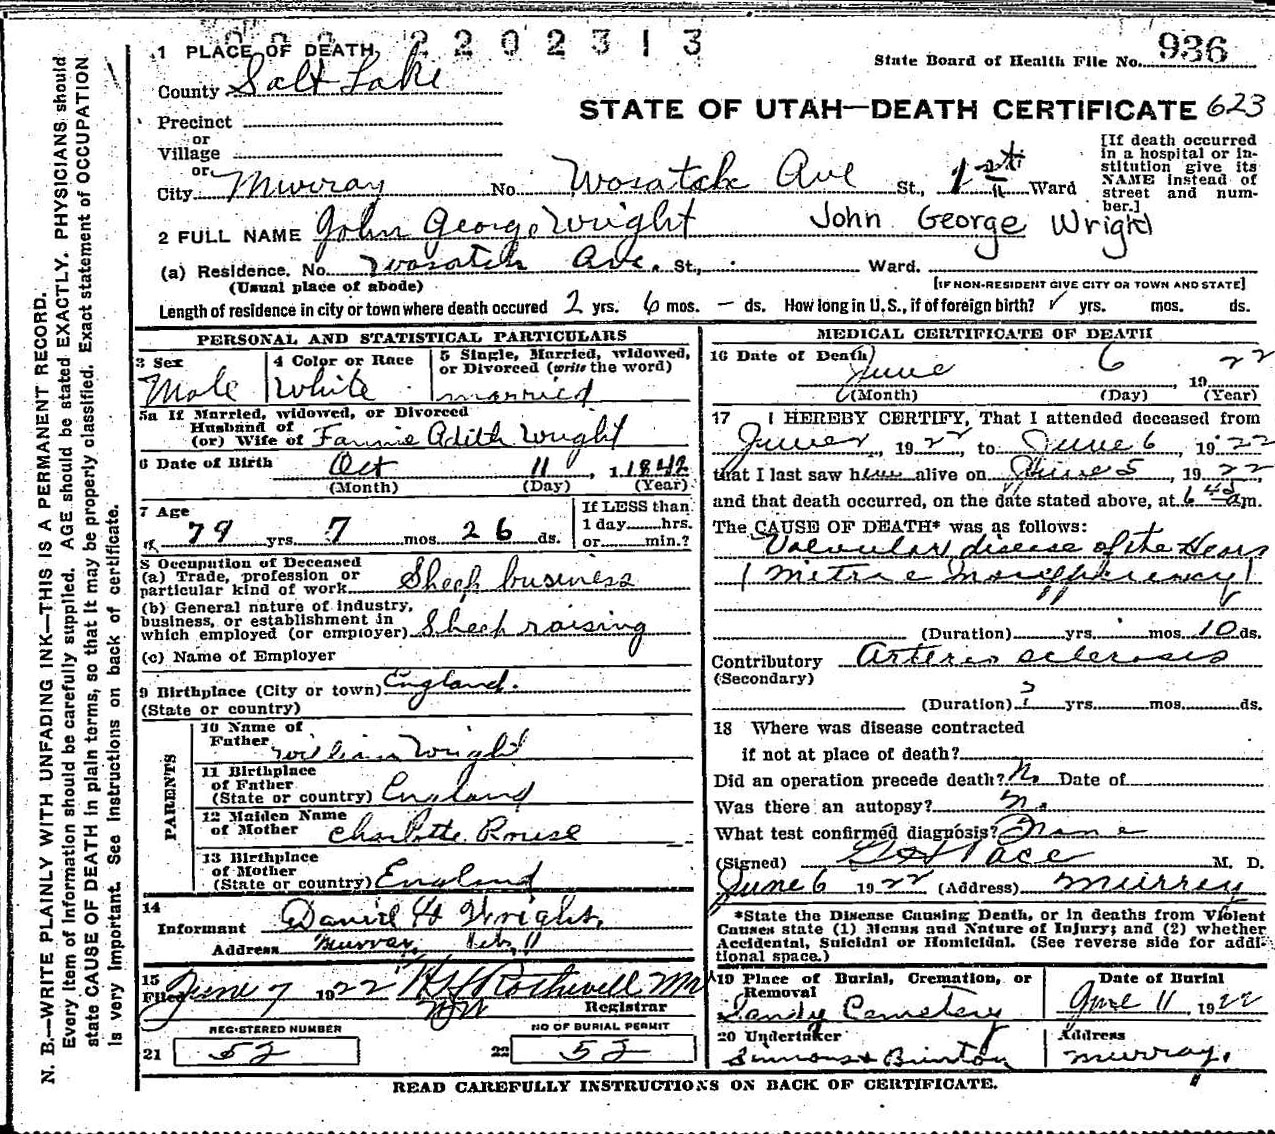 2202313
1 PLACE OF DEATH
State Board of Health File No. 936
County Salt Lake
STATE OF UTAH—DEATH CERTIFICATE 623
Precinct
or
Village
or
City Murray No. Wosatch Ave St., 1st Ward
[If death occurred
in a hospital or in-
stitution give its
NAME instead of
street and num-
ber.]
2 FULL NAME John George Wright John George Wright
(a) Residence. No. Wosatch Ave. St., Ward.
(Usual place of abode)
[IF NON-RESIDENT GIVE CITY OR TOWN AND STATE]
Length of residence in city or town where death occured 2 yrs. 6 mos. – ds. How long in U.S., if of foreign birth? ✓ yrs. mos. ds.
PERSONAL AND STATISTICAL PARTICULARS
3 Sex
Male
4 Color or Race
White
5 Single, Married, widowed,
or Divorced (write the word)
married
5a If Married, widowed, or Divorced
Husband of
(or) Wife of Fannie Adith Wright
6 Date of Birth Oct 11, 1842
(Month) (Day) (Year)
7 Age
79 yrs. 7 mos. 26 ds.
If LESS than
1 day hrs.
or min.?
8 Occupation of Deceased
(a) Trade, profession or
particular kind of work Sheep business
(b) General nature of industry,
business, or establishment in
which employed (or employer) Sheep raising
(c) Name of Employer
9 Birthplace (City or town) England.
(State or country)
PARENTS
10 Name of
Father William Wright
11 Birthplace
of Father
(State or country) England
12 Maiden Name
of Mother Charlotte Rouse
13 Birthplace
of Mother
(State or country) England
14
Informant Daniel H Wright,
Address Murray,
15
Filed June 7 1922 Rothwell
Registrar
REGISTERED NUMBER
21 52
NO OF BURIAL PERMIT
22 52
MEDICAL CERTIFICATE OF DEATH
16 Date of Death
June 6, 1922
(Month) (Day) (Year)
17 I HEREBY CERTIFY, That I attended deceased from
June, 1922, to June 6, 1922
that I last saw him alive on June 5, 1922,
and that death occurred, on the date stated above, at 6 45 a m.
The CAUSE OF DEATH* was as follows:
Valvular disease of the Heart
(Duration) yrs. mos. 10 ds.
Contributory Arterio sclerosis
(Secondary)
(Duration) yrs. mos. ds.
18 Where was disease contracted
if not at place of death?
Did an operation precede death? No Date of
Was there an autopsy? No
What test confirmed diagnosis? None
(Signed) Pace M. D.
June 6 1922 (Address) Murray
*State the Disease Causing Death, or in deaths from Violent
Causes state (1) Means and Nature of Injury; and (2) whether
Accidental, Suicidal or Homicidal. (See reverse side for addi-
tional space.)
19 Place of Burial, Cremation, or
Removal
Sandy Cemetery
Date of Burial
11 1922
20 Undertaker
Address
Murray.
READ CAREFULLY INSTRUCTIONS ON BACK OF CERTIFICATE.
N. B.—WRITE PLAINLY WITH UNFADING INK—THIS IS A PERMANENT RECORD.
Every item of information should be carefully supplied. AGE should be stated EXACTLY. PHYSICIANS should
state CAUSE OF DEATH in plain terms, so that it may be properly classified. Exact statement of OCCUPATION
is very important. See instructions on back of certificate.